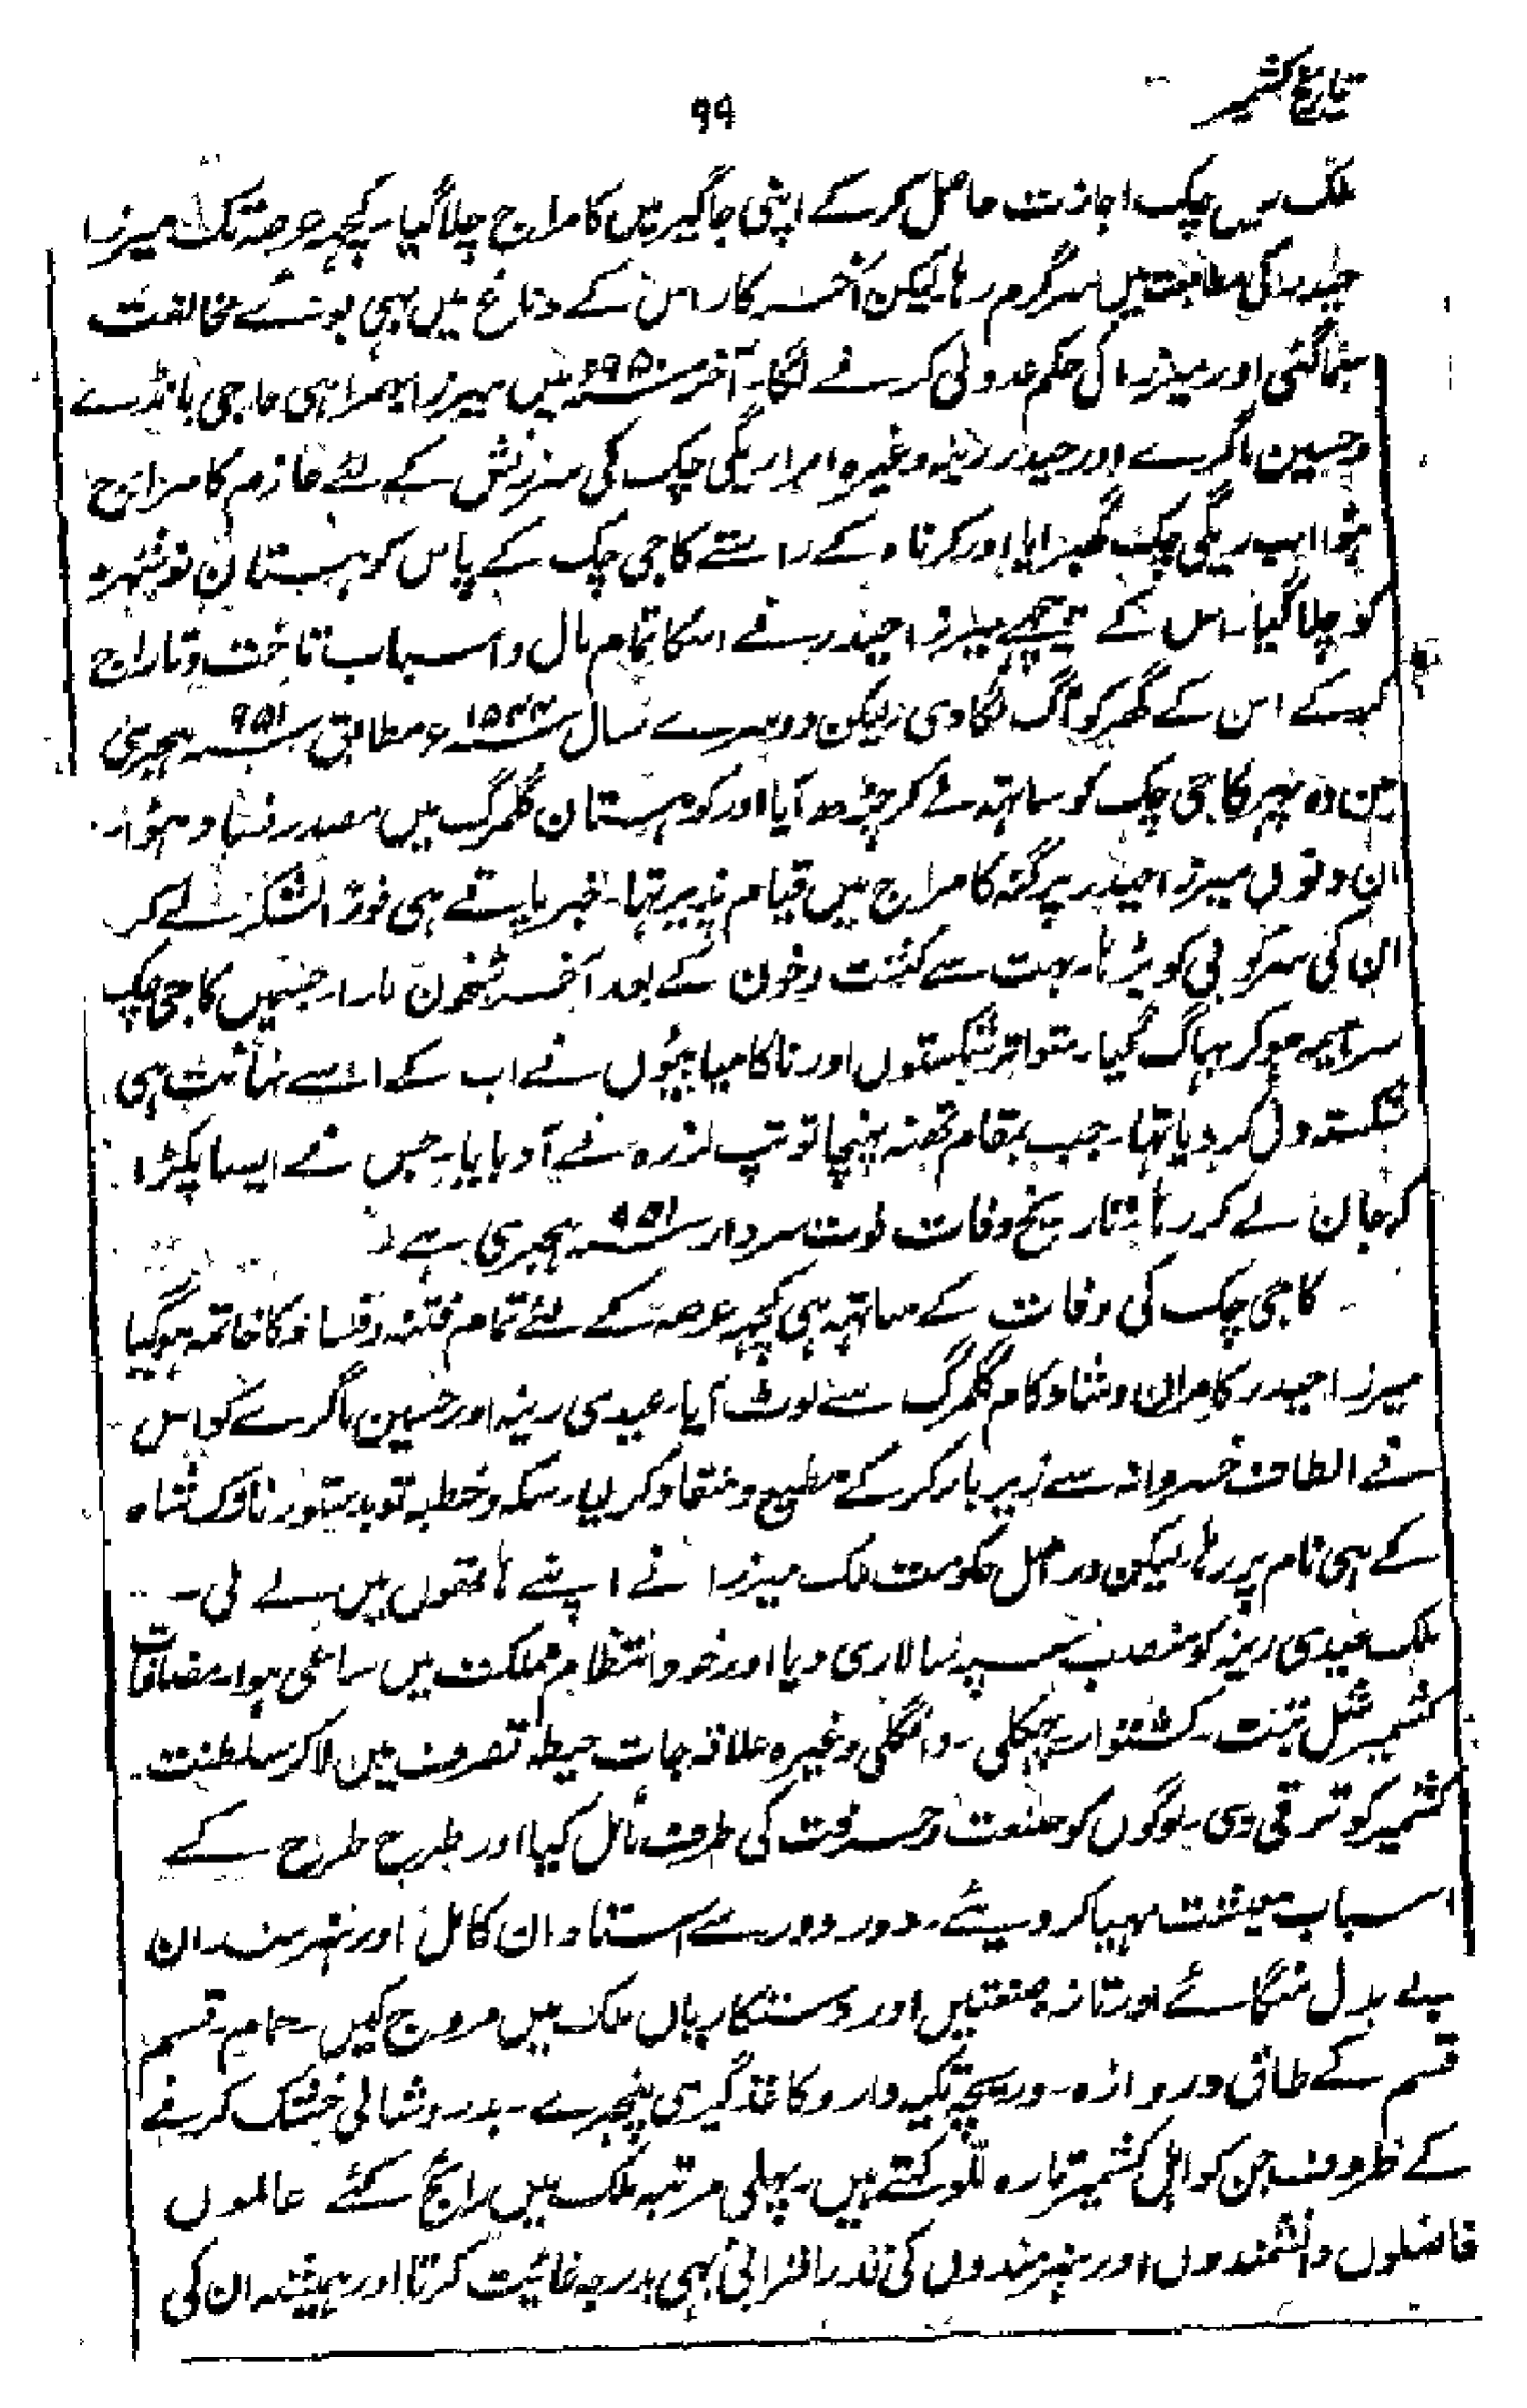 تاریخ کشمیر
۹۹
ملک ریس چک اجازت حاصل کرکے اپنی جاگیر میں کامراج چلا گیا۔ کچہہ عرصہ تک میرزا
حیدر کی متابعت میں سرگرم رہا لیکن آخر کار اس کے دماغ میں بہی بوئے مخالفت
سماگئی اور میرزا کی حکم عدولی کرنے لگا۔ آخر ۹۵۰ھ میں میرزا بہمراہی حاجی بانڈے
وحسین ماگرے اور حیدر رینہ وغیرہ امرا ریگی چک کی سرزنش کے لئے عازم کامراج
ہؤا اب ریگی چک گھبرایا اور کرناہ کے راستے کاجی چک کے پاس کوہستان نوشہرہ
کو چلا گیا۔ اس کے پیچھے میرزا حیدر نے اسکا تمام مال واسباب تاخت وتاراج
کرکے اس کے گھر کو آگ لگادی لیکن دوسرے سال ۱۵۴۴ء مطابق ۹۵۱ ہجری
میں وہ پہر کاجی چک کو ساتہہ لے کر چڑھ آیا اور کوہستان گلمرگ میں مصدر فساد ہؤا۔
ان دنوں میرزا حیدر پرگنہ کامراج میں قیام پذیر تہا۔ خبر پاتے ہی فوراً لشکر لے کر
ان کی سرکوبی کو بڑہا۔ بہت سے کشت وخون کے بعد آخر شبخون مارا۔ جنہیں کاجی چک
سراسیمہ ہوکر بہاگ گیا۔ متواتر شکستوں اور ناکامیابیؤں نے اب کے اسے نہائت ہی
شکستہ دل کردیا تہا۔ جب بمقام تھنہ پہنچا تو تپ لرزہ نے آدبایا۔ جس نے ایسا پکڑا
کہ جان لے کر رہا تاریخ وفات فوت سردار ۹۵۱ ہجری ہے
کاجی چک کی وفات کے ساتہہ ہی کچہہ عرصہ کے لئے تمام فتنہ وفساد کا خاتمہ ہوگیا
میرزا حیدر کامران وشادکام گلمرگ سے لوٹ آیا۔ عیدی رینہ اور حسین ماگرے کو اس
نے الطاف خسروانہ سے زیر بار کرکے مطیع ومنقاد کرلیا۔ سکہ وخطبہ تو بدستور نازک شاہ
کے ہی نام پر رہا۔ لیکن دراصل حکومت ملک میرزا نے اپنے ہاتھوں میں لے لی۔
ملک عیدی رینہ کو منصب سپہ سالاری دیا اور خود انتظام مملکت میں ساعی ہوا۔ مضافات
کشمیر مثل تبت۔ کشتواڑ۔ پہکلی۔ دانگلی وغیرہ علاقہ جات حیطہ تصرف میں لاکر سلطنت
کشمیر کو ترقی دی۔ لوگوں کو صنعت وحرفت کی طرف مائل کیا اور طرح طرح کے
اسباب معیشت مہیا کردیئے۔ دور دور سے استادان کامل اور ہنرمندان
بے بدل منگائے اور تازہ صنعتیں اور دستکاریاں ملک میں مروج کیں۔ حمام۔ قسم
قسم کے طاق دروازہ۔ دریچہ تکیہ دار وکاغذگیری پنجرے۔ بدر وشالی خشک کرنے
کے ظروف جن کو اہل کشمیر تارہ للو کہتے ہیں۔ پہلی مرتبہ ملک میں رائج کئے عالموں
فاضلوں دانشمندوں اور ہنرمندوں کی قدر افزائی بہی بدرجہ غائیت کرتا اور ہمیشہ ان کی